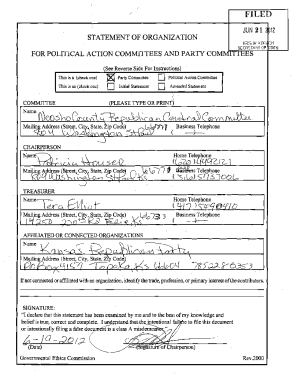 FILED
JUN 21 2012
KRIS W. KOBACH
SECRETARY OF STATE
STATEMENT OF ORGANIZATION
FOR POLITICAL ACTION COMMITTEES AND PARTY COMMITTEES
(See Reverse Side For Instructions)
This is a (check one) Party Committee Political Action Committee
This is an (check one) Initial Statement Amended Statement
COMMITTEE (PLEASE TYPE OR PRINT)
Name
Neosho County Republican Central Committee
Mailing Address (Street, City, State, Zip Code) Business Telephone
Washington
CHAIRPERSON
Name Home Telephone
Patricia Houser
Mailing Address (Street, City, State, Zip Code) Business Telephone
TREASURER
Name Home Telephone
Tera Elliot
Mailing Address (Street, City, State, Zip Code) Business Telephone
AFFILIATED OR CONNECTED ORGANIZATIONS
Name
Kansas Republican Party
Mailing Address (Street, City, State, Zip Code) Business Telephone
PO Box 4157 Topeka, Ks 66604
If not connected or affiliated with an organization, identify the trade, profession, or primary interest of the contributors.
SIGNATURE:
"I declare that this statement has been examined by me and to the best of my knowledge and
belief is true, correct and complete. I understand that the intentional failure to file this document
or intentionally filing a false document is a class A misdemeanor."
6-19-2012
(Date) (Signature of Chairperson)
Governmental Ethics Commission Rev.2000